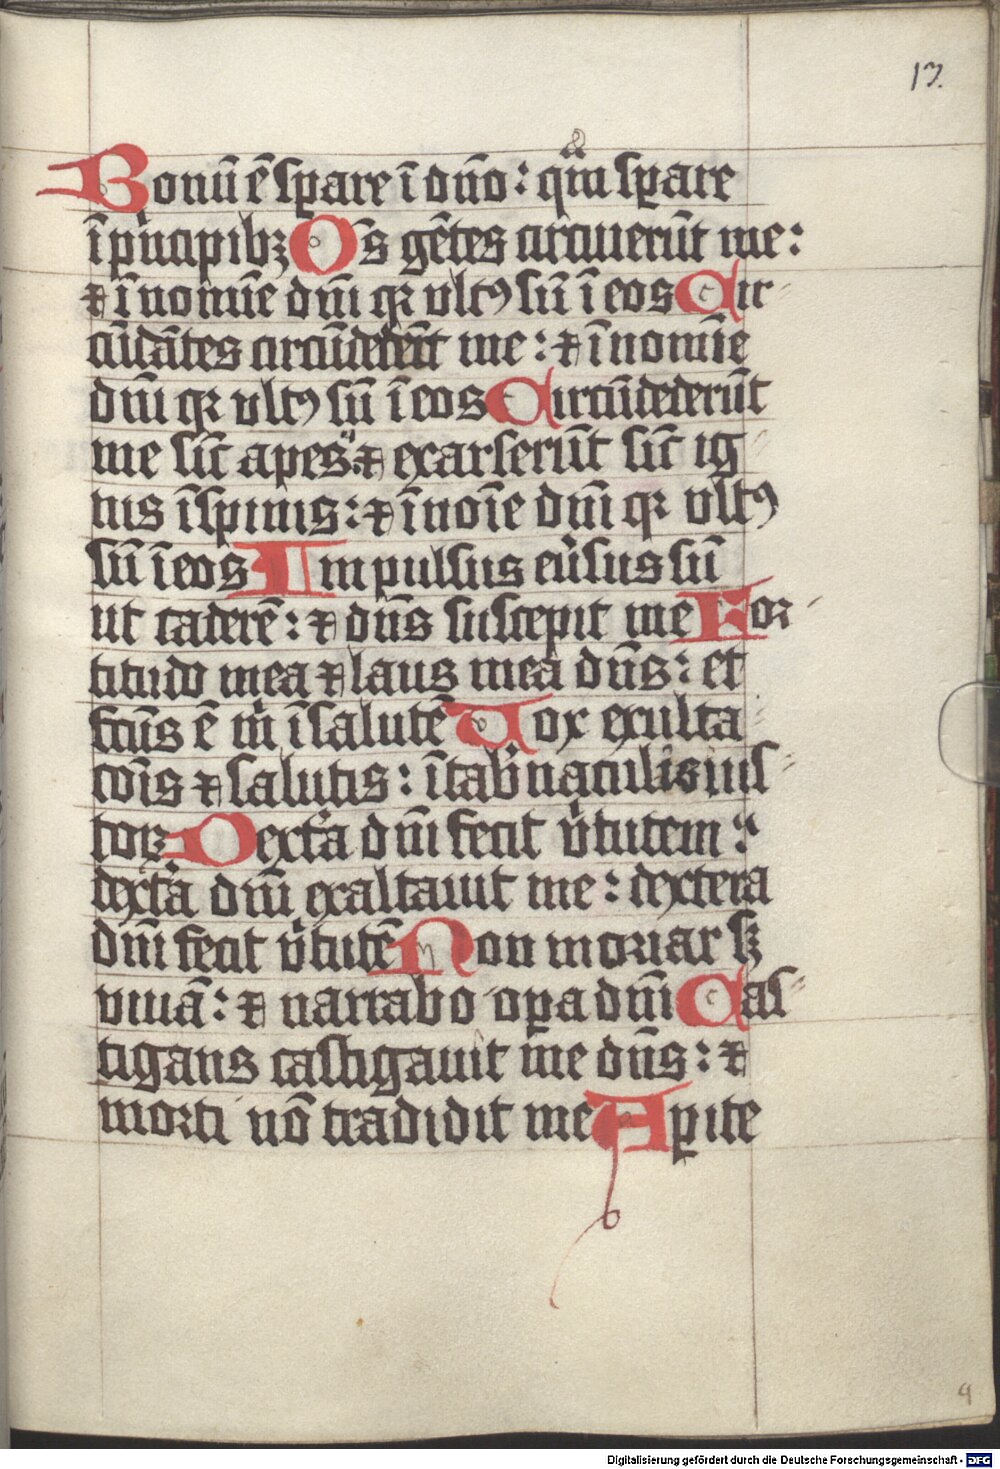 13.
Bonū ē spare ī dño: qͣm spare
ī pⁱncipibꝫ Os gētes circuierūt me:
⁊ ī nomīe dñi qꝛ vltꝰ sū ī eos Cir-
cūdātes circūdederūt me: ⁊ ī nomīe
dñi qꝛ vltꝰ sū ī eos Circūdederūt
me sic̄ apes: ⁊ exarserūt sic̄ ig-
nis ī spinis: ⁊ ī noīe dñi qꝛ vltꝰ
sū ī eos Impulsus eūsus sū
ut caderē: ⁊ dñs suscepit me For-
titudo mea ⁊ laus mea dñs: et
fcūs ē mⁱ ī salutē Vox exulta-
cōis ⁊ salutis: ī tab̉naculis ius-
toꝝ Dext̉a dñi fecit v̉tutem:
dext̉a dñi exaltauit me: dextera
dñi fecit v̉tutē Non moriar sꝫ
viuā: ⁊ narrabo oꝑa dñi Cas-
tigans castigauit me dñs: ⁊
morti nō tradidit me Apite
9
Digitalisierung gefördert durch die Deutsche Forschungsgemeinschaft - DFG